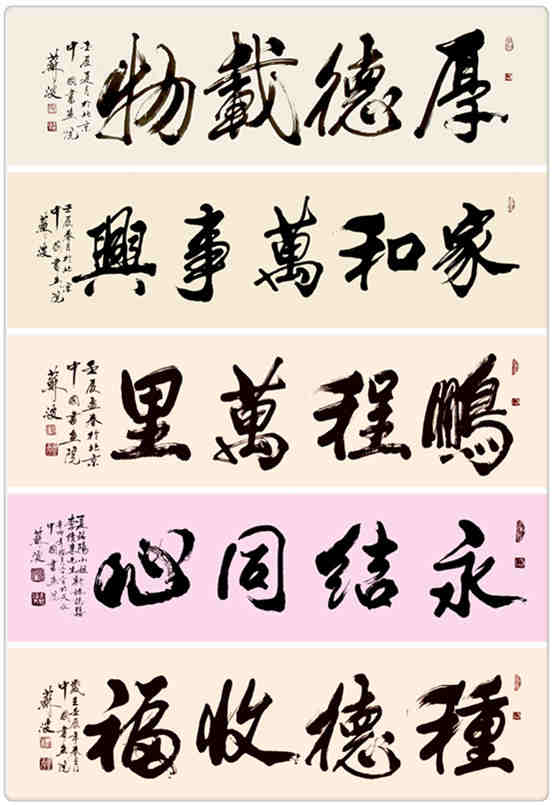 厚德載物
壬辰夏月於北京
中國書畫院
家和萬事興
壬辰春月於北京
中國書畫院
鵬程萬里
壬辰孟春於北京
中國書畫院
永結同心
中國書畫院
種德收福
中國書畫院